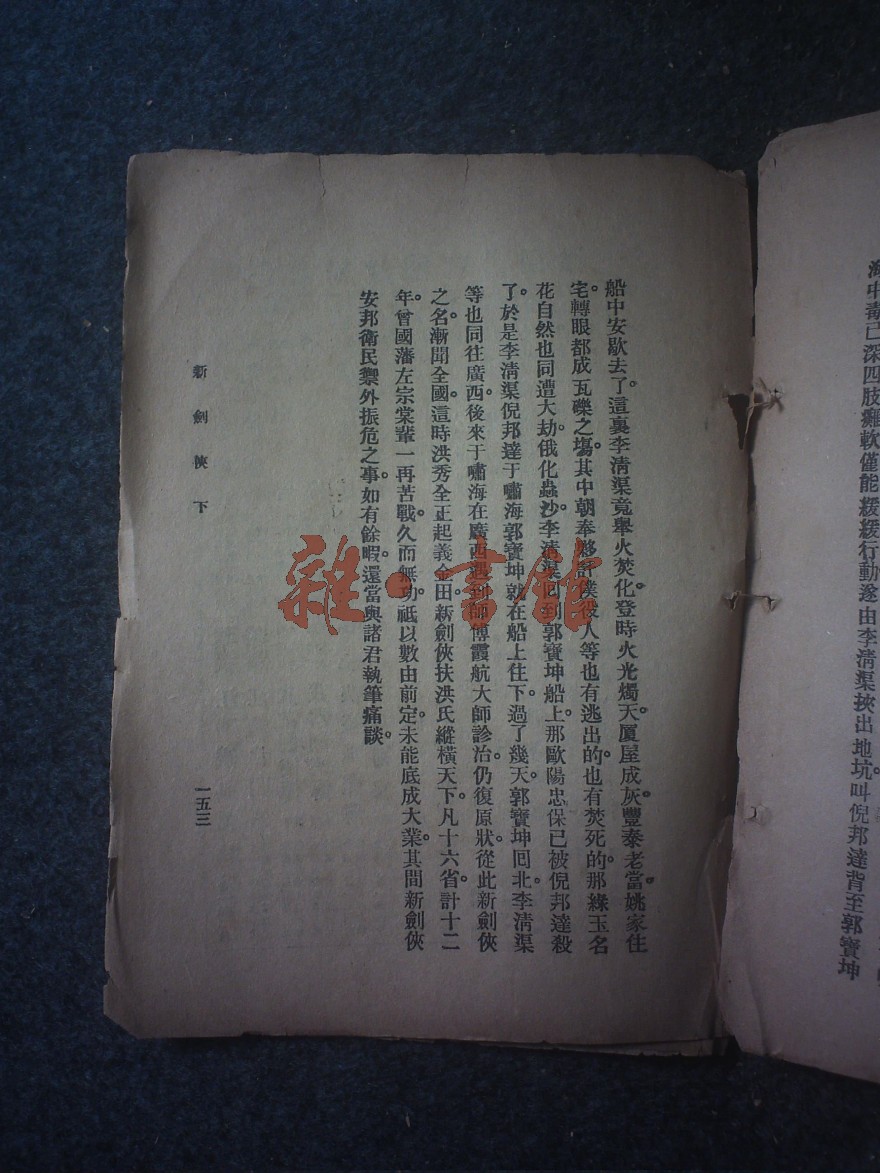 海中毒已深四肢癱軟僅能緩緩行動遂由李淸渠挾出地坑叫倪邦達背至郭寶坤
船中安歇去了。這裏李淸渠竟舉火焚化。登時火光燭天。厦屋成灰。豐泰老當姚家住
宅。轉眼都成瓦礫之塲。其中朝奉夥計僕役人等也有逃出的。也有焚死的。那綠玉名
花自然也同遭大劫。俄化蟲沙。李淸渠回到郭寶坤船上。那歐陽忠保已被倪邦達殺
了。於是李淸渠倪邦達于嘯海郭寶坤就在船上住下。過了幾天。郭寶坤回北。李淸渠
等也同往廣西。後來于嘯海在廣西遇到師傅霞航大師診治。仍復原狀。從此新劍俠
之名。漸聞全國。這時洪秀全正起義金田。新劍俠扶洪氏縱橫天下。凡十六省。計十二
年。曾國藩左宗棠輩一再苦戰。久而無功。祇以數由前定。未能底成大業。其間新劍俠
安邦衛民禦外振危之事。如有餘暇。還當與諸君執筆痛談。
新劍俠下
一五三
雜·言館